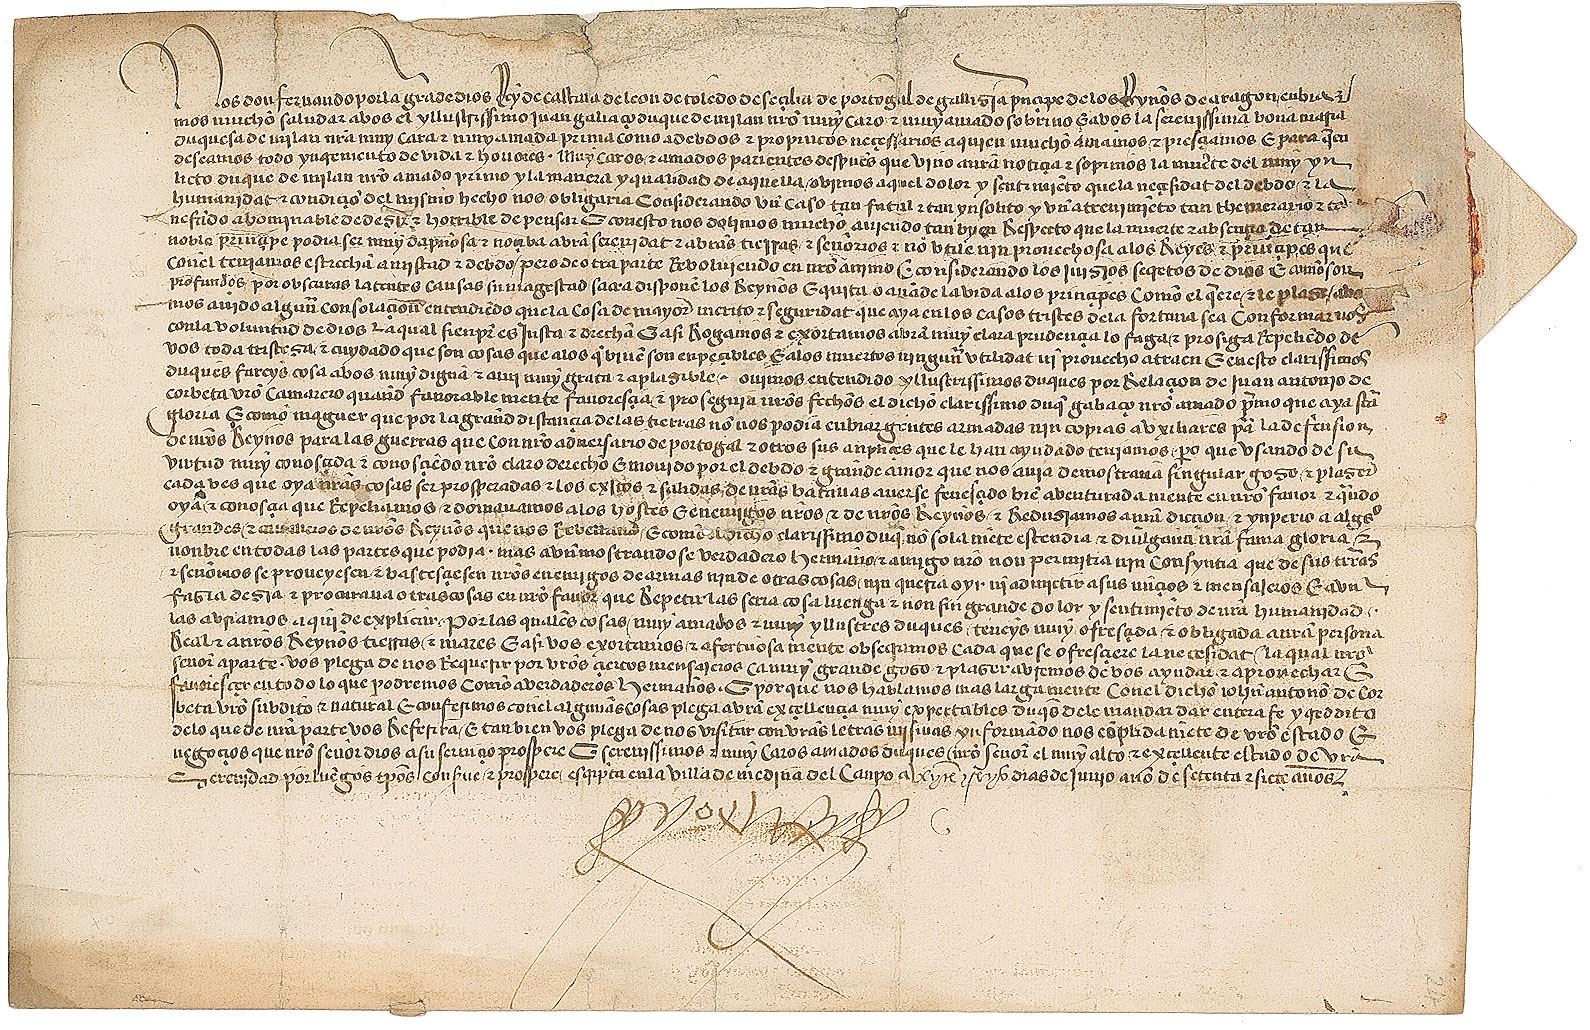 Nos don fernando por la gra de dios Rey de Castilla de leon de toledo de seçilia de portogal de gallizia prinçipe de los Reynos de aragon enbia
mos mucho saludar a vos el yllustrissimo iuan galiaço duque de milan nro muy caro & muy amado sobrino & a vos la serenissima bona maria
duquesa de milan nra muy cara & muy amada prima como a debdos & propincos neçessarios a quien mucho amamos & presçiamos & para quien
deseamos todo de vida & honores . Muy caros & amados parientes despues que vino a nra notiçia & sopimos la muerte del muy yn
lito duque de milan nro amado primo y la manera y qualidad de aquella, ovimos aquel dolor y sentimieto que la neçesidat del debdo & la
humanidat & condiçio del mismo hecho nos obligaria Considerando vn caso tan fatal & tan ynsolito y vn atrevimieto tan themerario &
nefando abominable de dezir & horrible de pensar & con esto nos dolimos mucho aviendo tan byen Respecto que la muerte & absençia de tan
noble prinçipe podia ser muy dapnosa & noçiva a vra serenidat & a vras tierras & señorios & no vtile nin provechosa a los Reyes & prinçipes que
con el teniamos estrecha amistad & debdo, pero de otra parte Revolviendo en nro animo & considerando los iuizios secretos de dios & como son
profundos, por obscuras latentes causas su magestad sacra dispone los Reynos & quita o añade la vida a los prinçipes como el quiere & le plaze,
mos avido algun consolaçion entendiedo que la cosa de mayor merito & seguridat que aya en los casos tristes de la fortuna sea conformar nos
con la voluntud de dios La qual sienpre es iusta & drecha & asi Rogamos & exortamos a vra muy clara prudençia lo faga & prosiga Repeliedo de
vos toda tristeza & cuydado que son cosas que a los q biue son enpeçibles & a los muertos ningun vtilidat ni provecho atraen & en esto clarissimos
duques fareys cosa a vos muy digna & a mi muy grata & aplazible . ovimos entendido yllustrissimos duques por Relaçion de iuan antonio de
corbeta vro camarero quand favorable mente favoresçia & proseguia nros fechos el dicho clarissimo duq gabaço nro amado primo que aya sta
gloria & como maguer que por la grand distançia de las tierras no nos podia enbiar gentes armadas nin copias avxiliares pa la defension
de nros Reynos para las guerras que con nro adversario de portogal & otros sus que le han ayudado teniamos, po que vsando de su
virtud muy conosçida & conosçiedo nro claro derecho & movido por el debdo & grande amor que nos avia demostrava singular gozo & plazer
cada ves que oya nras cosas ser prosperadas & los exitos & salidas de nras batallas averse feneçido bie aventurada mente en nro favor & qndo
oya & conosçia que Repeliamos & domavamos a los hostes & enemigos nros & de nros Reynos & Reduziamos a nra diccion & ynperio a algos
grandes & cavalleros de nros Reynos que nos Revellavan, & como el dicho clarissimo duq no sola mete estendia & diuulgava nra fama gloria &
nonbre en todas las partes que podia . mas avn mostrando se verdadero hermano & amigo nro non permitia nin consyntia que de sus trras
& señorios se proveyesen & basteçiesen nros enemigos de armas nin de otras cosas, nin queria oyr ni admictir a sus nuçios & mensajeros & avn
fazia dezia & procurava otras cosas en nro favor que Repetir las seria cosa luenga & non sin grande dolor y sentimieto de nra humanidad .
las avriamos aqui de explicar . Por las quales cosas, muy amados & muy yllustres duques, teneys muy ofresçida & obligada a nra persona
Real & a nros Reynos tierras & mares & asi vos exortamos & afectuosa mente obsecramos cada que se ofresciere la neçesidat, la qual nro
senor aparte, vos plega de nos Requerir por vros çiertos mensajeros ca muy grande gozo & plazer avremos de vos ayudar & aprovechar &
favoresçer en todo lo que podremos como a verdaderos hermanos . & porque nos hablamos mas larga mente con el dicho iohn antono de Cor
beta vro subdito & natural & conferimos con el algunas cosas plega a vra exçellençia muy expectables duqs de le mandar dar entera fe y creddito
de lo que de nra parte vos Referira, & tan bien vos plega de nos visitar con vras letras misivas ynformando nos coplida mete de vro estado &
negoçios que nro señor dios a su serviço prospere & serenissimos & muy caros amados duques nro señor el muy alto & exçellente estado de vra
Serenidad por luegos tpos conserue & prospere, escripta en la villa de medina del Canpo a xxvi dias de junio año de setenta & siete años